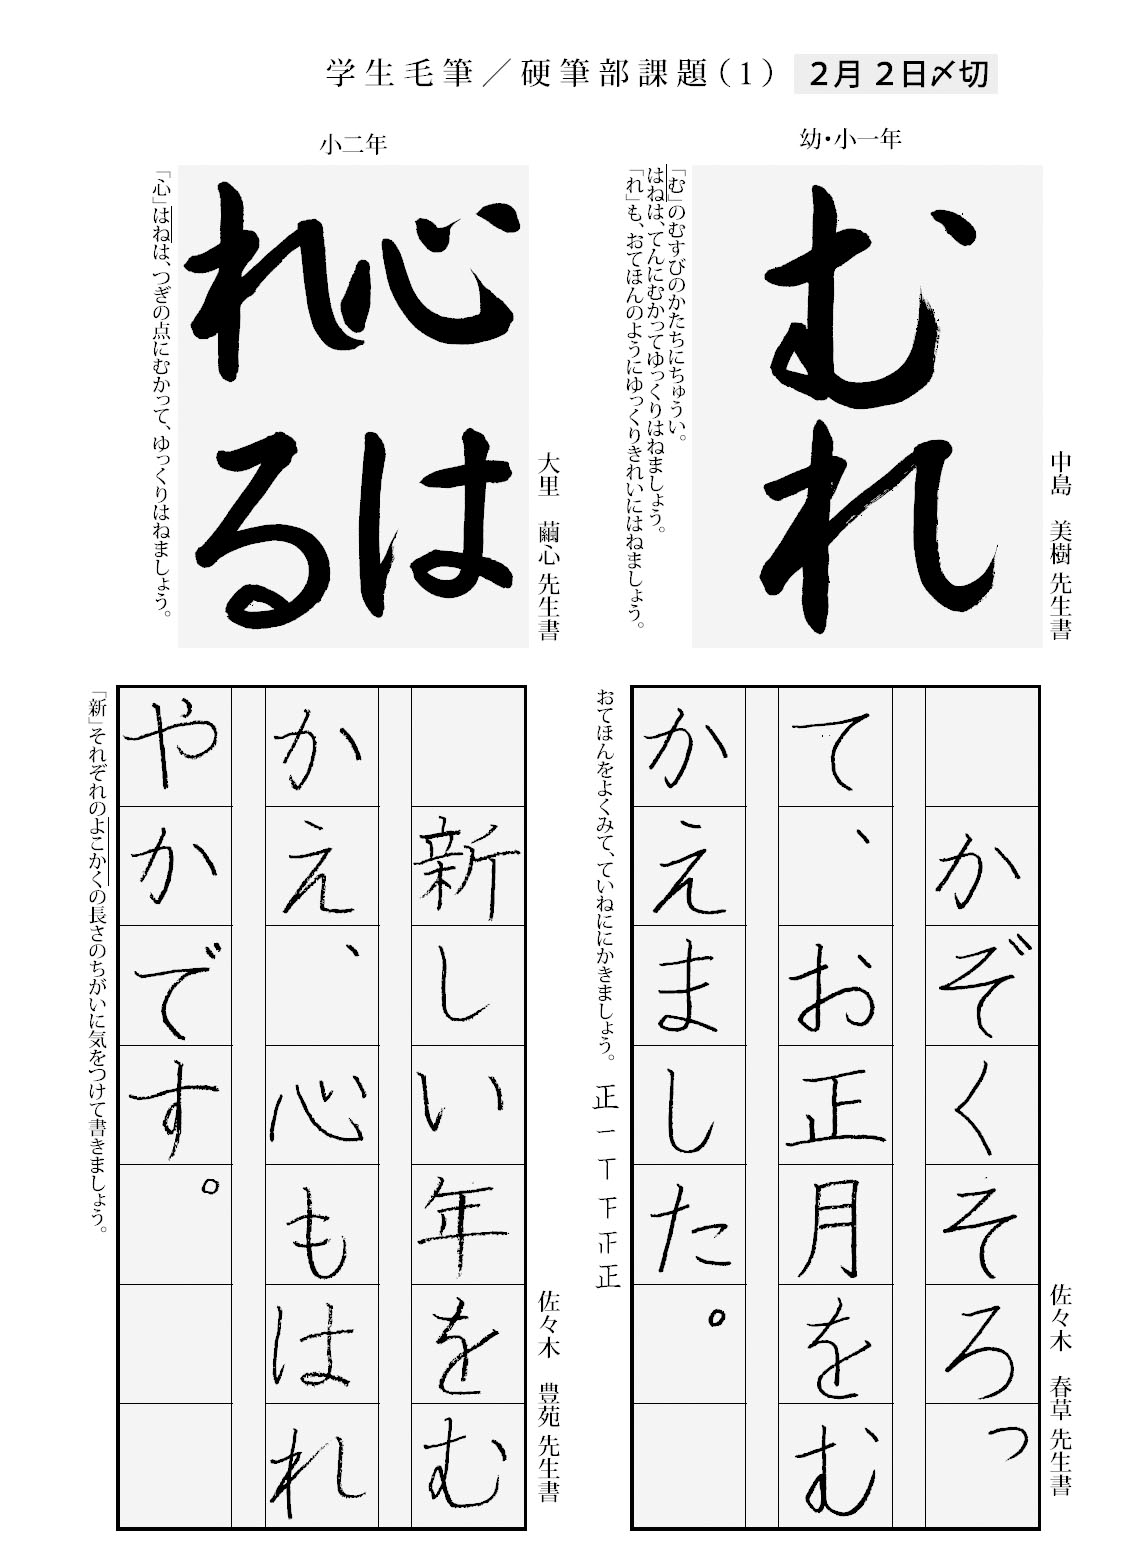 学生毛筆／硬筆部課題（1）　２月２日〆切
幼・小一年
むれ
中島　美樹 先生書
「む」のむすびのかたちにちゅうい。
はねは、てんにむかってゆっくりはねましょう。
「れ」も、おてほんのようにゆっくりきれいにはねましょう。
小二年
心は
れる
大里　繭心 先生書
「心」はねは、つぎの点にむかって、ゆっくりはねましょう。
かぞくそろっ
て、お正月をむ
かえました。
佐々木　春草 先生書
おてほんをよくみて、ていねににかきましょう。
正 一 丅 下 正 正
新しい年をむ
かえ、心もはれ
やかです。
佐々木　豊苑 先生書
「新」それぞれのよこかくの長さのちがいに気をつけて書きましょう。